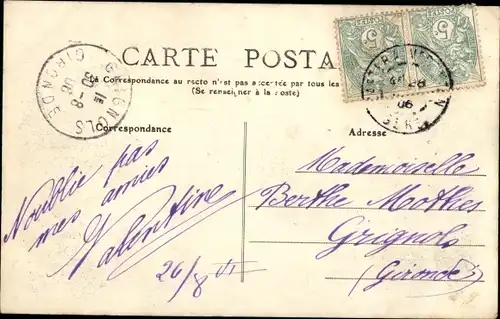 CARTE POSTA
La Correspondance au recto n'est pas acceptée par tous les
(Se renseigner à la Poste)
GRIGNOLS
GIRONDE
30-8
06
Correspondance
Adresse
N'oublie pas
mes amies
Valentine
26/8 VI
Mademoiselle
Berthe Mothes
Grignols
(Gironde)
5
5
06
GERS